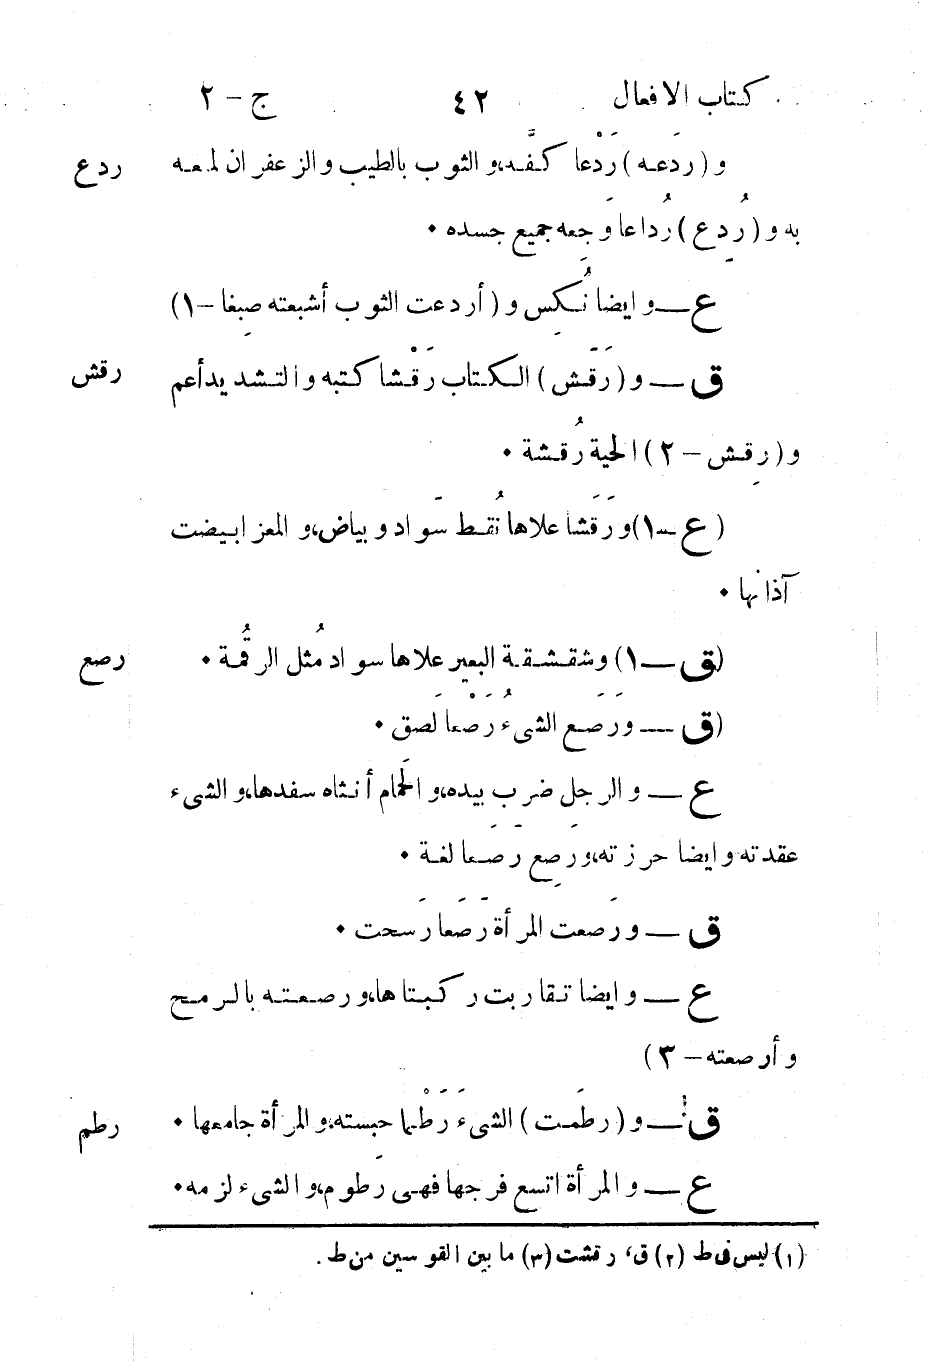 كتاب الافعال ٤٢ ج - ٢
و (ردَعه) رَدْعا كفَّه، والثوب بالطيب والزعفران لمعه ردع
به و (رُدِع) رُداعا وَجِعه جميع جسده •
ع — وايضا نُكِس و (أردعت الثوب أشبعته صِبغا - ١)
ق — و (رَقَّش) الكتاب رَقْشا كتبه والتشديد أعم رقش
و (رقِش - ٢) الحية رُقشة •
(ع - ١) ورَقَشا علاها نُقط سَواد وبياض، والمعز ابيضت
آذانها •
(ق — ١) وشقشقة البعير علاها سواد مُثل الرقُمة • رصع
(ق — ورَصَع الشىءُ رَصْعا لَصق •
ع — والرجل ضرب بيده، والحَمام أنثاه سفدها، والشىء
عقدته وايضا حرزته، ورَصِع رَصَعا لغة •
ق — ورَصعت المرأة رَصَعا رَسحت •
ع — وايضا تقاربت ركبتاها، ورصعته بالرمح
وأرصعته - ٣)
ق — و (رطَمت) الشىءَ رَطْما حبَسته، والمرأة جامعها • رطم
ع — والمرأة اتسع فرجها فهى رَطوم، والشىء لزمه •
(١) ليس فى ط (٢) ق، رقشت (٣) ما بين القوسين من ط.